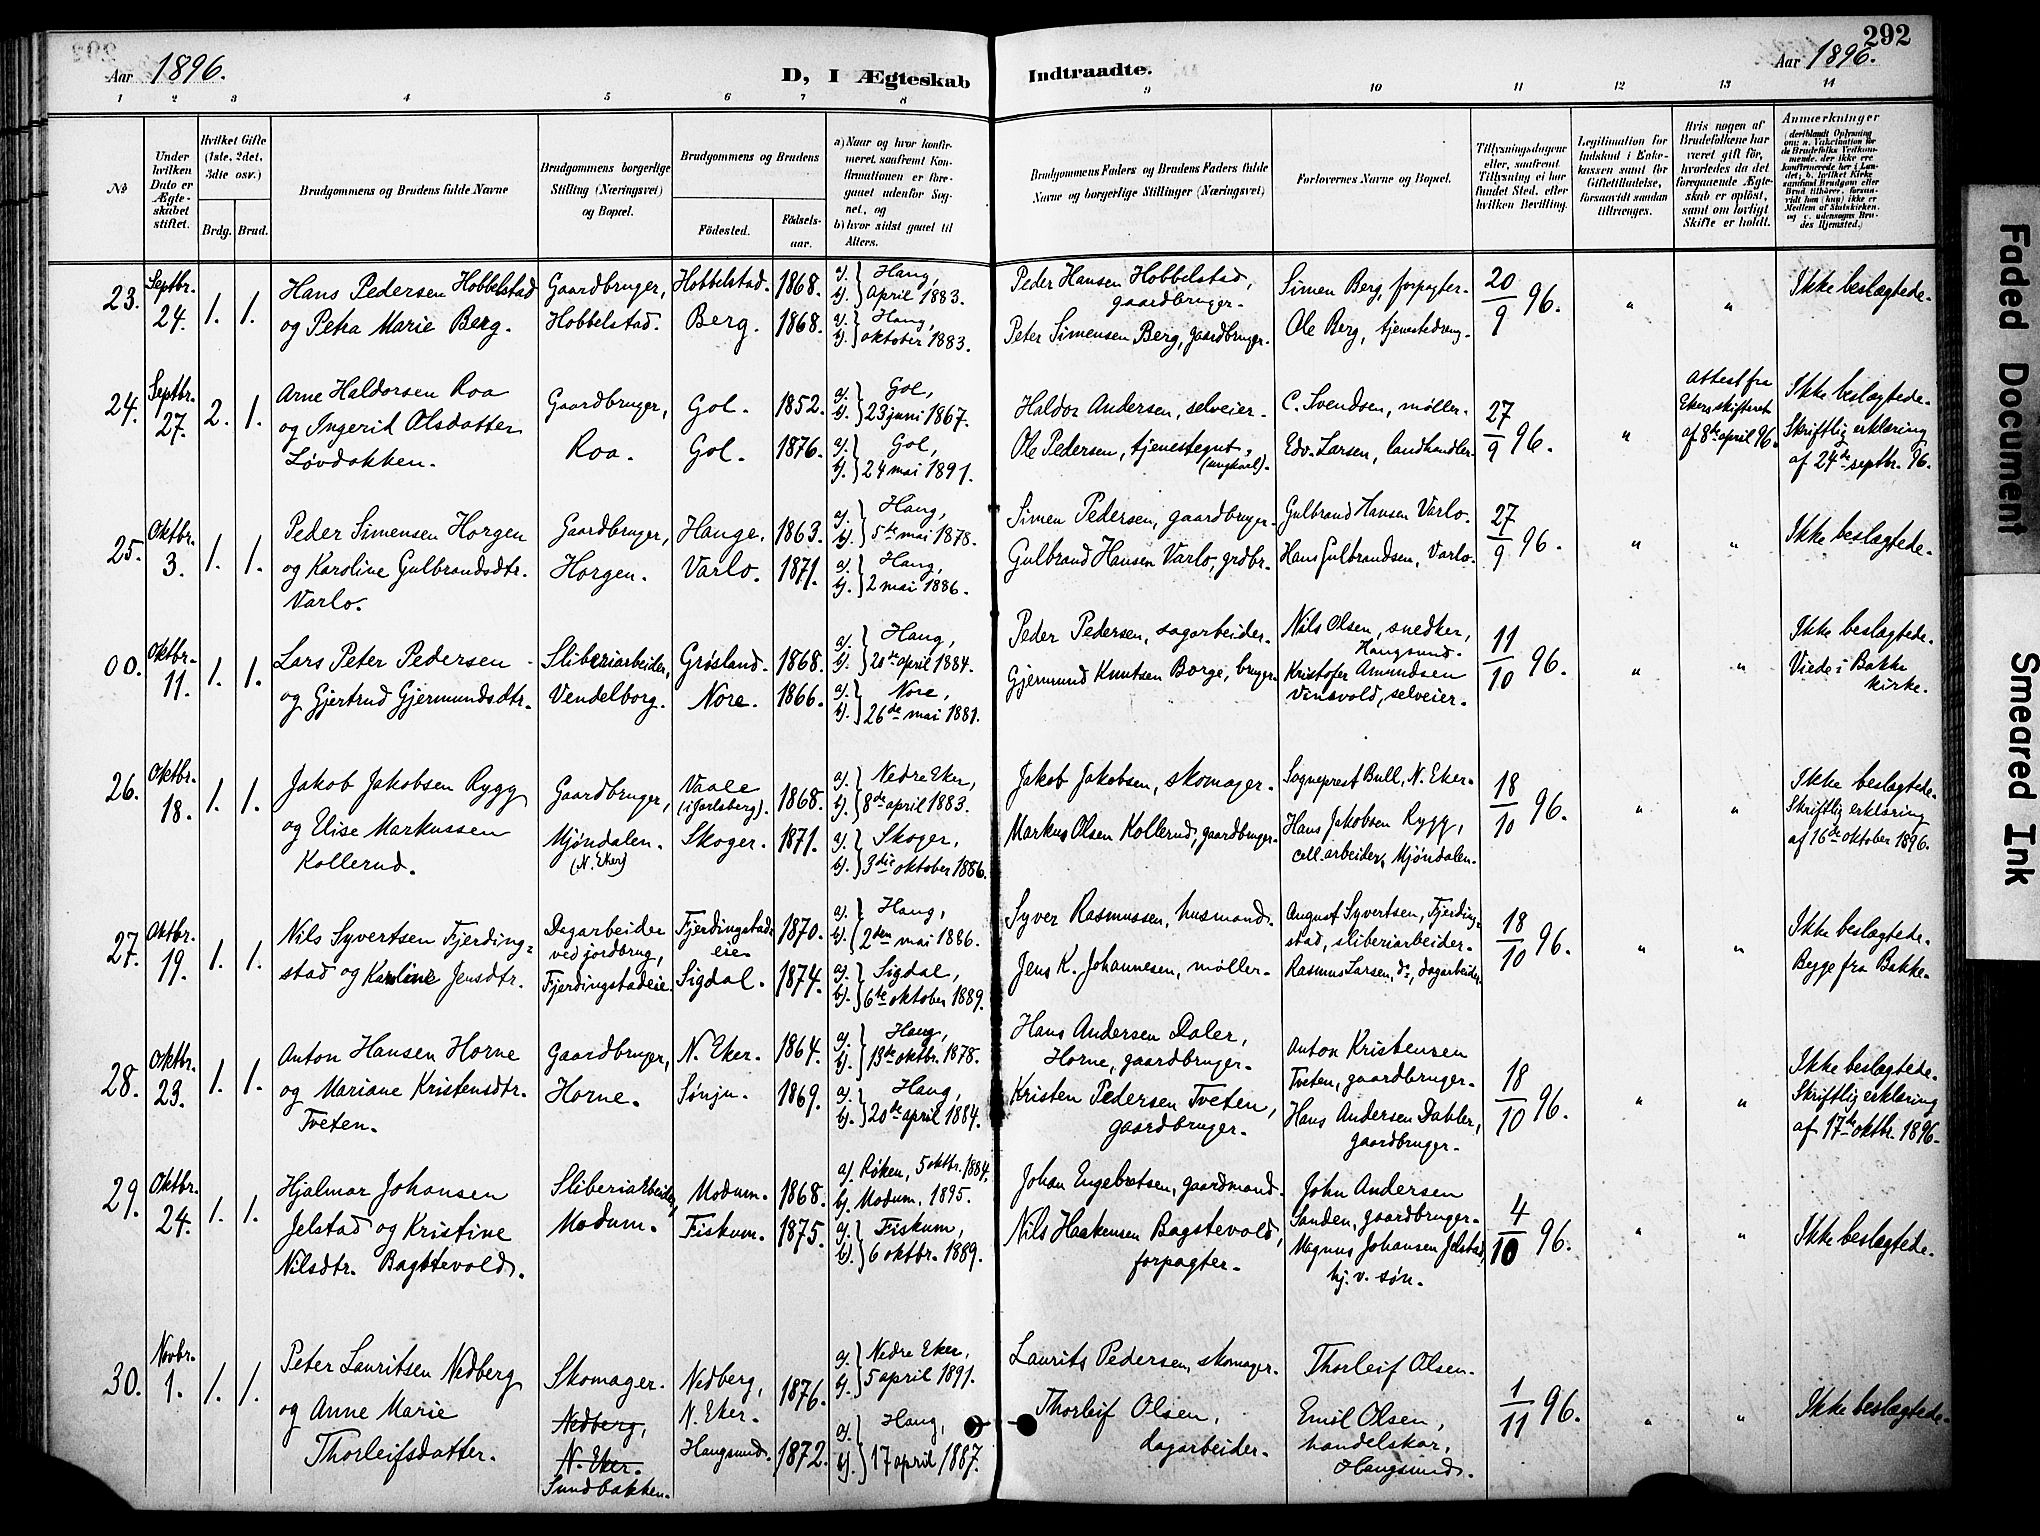 292
Aar 1896.
D, I Ægteskab Indtraadte.
Aar 1896.
1 2 3 4 5 6 7 8 9 10 11 12 13 14
No
Under hvilken Dato er Ægteskabet stiftet.
Hvilket Gifte (1ste, 2det, 3die osv.)
Brdg. Brud.
Brudgommens og Brudens fulde Navne
Brudgommens borgerlige Stilling (Næringsvei) og Bopæl.
Brudgommens og Brudens
Fødested.
Fødselsaar.
a) Naar og hvor konfirmeret, saafremt Konfirmationen er foregaaet udenfor Sognet, og
b) hvor sidst gaaet til Alters.
Brudgommens Faders og Brudens Faders fulde Navne og borgerlige Stillinger (Næringsvei)
Forlovernes Navne og Bopæl.
Tillysningsdagene eller, saafremt Tillysning ei har fundet Sted, efter hvilken Bevilling.
Legitimation for Indskud i Enkekassen samt for Giftetilladelse, forsaavidt saadan tiltrænges.
Hvis nogen af Brudefolkene har været gift før, hvorledes da det foregaaende Ægteskab er opløst, samt om lovligt Skifte er holdt.
Anmærkninger
(deriblandt Oplysning om: a. Vakcination for de Brudefolks Vedkommende, der ikke ere konfirmerede her i Landet; b. hvilket Kirkesamfund Brudgom eller Brud tilhører, forsaavidt han (hun) ikke er Medlem af Statskirken, og c. udensogns Brudes Hjemsted.)
23. Septbr. 24. 1. 1.
Hans Pedersen Hobbelstad
og Petra Marie Berg.
Gaardbruger,
Hobbelstad.
Hobbelstad. 1868.
Berg. 1868.
a). b). } Haug, april 1883.
a). b). } Haug, oktober 1883.
Peder Hansen Hobbelstad,
gaardbruger.
Peter Simensen Berg, gaardbruger.
Simen Berg, forpagter.
Ole Berg, tjenestedreng.
20/9 96.
" "
Ikke beslægtede.
24. Septbr. 27. 2. 1.
Arne Haldorsen Roa
og Ingerid Olsdatter
Løvdokken.
Gaardbruger,
Roa.
Gol. 1852.
Gol. 1876.
a). b). } Gol, 23 juni 1867.
a). b). } Gol, 24 mai 1891.
Haldor Andersen, selveier.
Ole Pedersen, tjenestegut,
(ungkarl).
C. Svendsen, møller.
Edv. Larsen, landhandler.
27/9 96.
"
Attest fra
Ekers skifteret
af 8de april 96.
Ikke beslægtede.
Skriftlig erklæring
af 24de septbr. 96.
25. Oktbr. 3. 1. 1.
Peder Simensen Horgen
og Karoline Gulbrandsdtr.
Varlo.
Gaardbruger,
Horgen.
Hauge. 1863.
Varlo. 1871.
a). b). } Haug, 5te mai 1878.
a). b). } Haug, 2 mai 1886.
Simen Pedersen, gaardbruger.
Gulbrand Hansen Varlo, grdbr.
Gulbrand Hansen Varlo.
Hans Gulbrandsen, Varlo.
27/9 96.
" "
Ikke beslægtede.
00. Oktbr. 11. 1. 1.
Lars Peter Pedersen
og Gjertrud Gjermundsdtr.
Sliberiarbeider,
Vendelborg.
Grøsland. 1868.
Nore. 1866.
a). b). } Haug, 20de april 1884.
a). b). } Nore, 26de mai 1881.
Peder Pedersen, sagarbeider.
Gjermund Knutsen Borge, bruger.
Nils Olsen, snedker,
Haugsund.
Kristofer Amundsen
Vinsvold, selveier.
11/10 96.
" "
Ikke beslægtede.
Viede i Bakke
kirke.
26. Oktbr. 18. 1. 1.
Jakob Jakobsen Rygg
og Elise Markussen
Kollerud.
Gaardbruger,
Mjøndalen.
(N. Eker)
Vaale
(i Jarlsberg). 1868.
Skoger. 1871.
a). b). } Nedre Eker, 8de april 1883.
a). b). } Skoger, 3die oktober 1886.
Jakob Jakobsen, skomager.
Markus Olsen Kollerud, gaardbruger.
Sogneprest Bull, N. Eker.
Hans Jakobsen Rygg,
cell. arbeider, Mjøndalen.
18/10 96.
" "
Ikke beslægtede.
Skriftlig erklæring
af 16de oktober 1896.
27. Oktbr. 19. 1. 1.
Nils Syvertsen Fjerding=
stad og Karoline Jensdtr.
Dagarbeider
ved jordbrug,
Fjerdingstadeie.
Fjerdingstad=
eie 1870.
Sigdal. 1874.
a). b). } Haug, 2den mai 1886.
a). b). } Sigdal, 6te oktober 1889.
Syver Rasmussen, husmand.
Jens K. Johannesen, møller.
August Syvertsen, Fjerding=
stad, sliberiarbeider.
Rasmus Larsen, do, dagarbeider.
18/10 96.
" "
Ikke beslægtede.
Begge fra Bakke.
28. Oktbr. 23. 1. 1.
Anton Hansen Horne
og Mariane Kristensdtr.
Tveten.
Gaardbruger,
Horne.
N. Eker. 1864.
Sønju. 1869.
a). b). } Haug, 13de oktbr. 1878.
a). b). } Haug, 20de april 1884.
Hans Andersen Daler,
Horne, gaardbruger.
Kristen Pedersen Tveten,
gaardbruger.
Anton Kristensen
Tveten, gaardbruger.
Hans Andersen Dahler,
gaardbruger.
18/10 96.
" "
Ikke beslægtede.
Skriftlig erklæring
af 17de oktbr. 1896.
29. Oktbr. 24. 1. 1.
Hjalmar Johansen
Jelstad og Kristine
Nilsdtr. Bagstevold.
Sliberiarbeider,
Modum.
Modum. 1868.
Fiskum. 1875.
a). Røken, 5 oktbr. 1884.
b). Modum, 1895.
a). b). } Fiskum, 6 oktbr. 1889.
Johan Engebretsen, gaardmand.
Nils Haakensen Bagstevold,
forpagter.
John Andersen
Sanden, gaardbruger.
Magnus Johansen Jelstad,
hj. v. søn.
4/10 96.
" "
Ikke beslægtede.
30. Novbr. 1. 1. 1.
Peter Lauritsen Nedberg
og Anne Marie
Thorleifsdatter.
Skomager.
Nedberg,
N. Eker.
Sundbakken.
Nedberg,
N. Eker. 1876.
Haugsund. 1872.
a). b). } Nedre Eker, 5 april 1891.
a). b). } Haug, 17 april 1887.
Laurits Pedersen, skomager.
Thorleif Olsen,
dagarbeider.
Thorleif Olsen.
Emil Olsen,
handelskar,
Haugsund.
1/11 96.
" "
Ikke beslægtede.
Faded Document
Smeared Ink